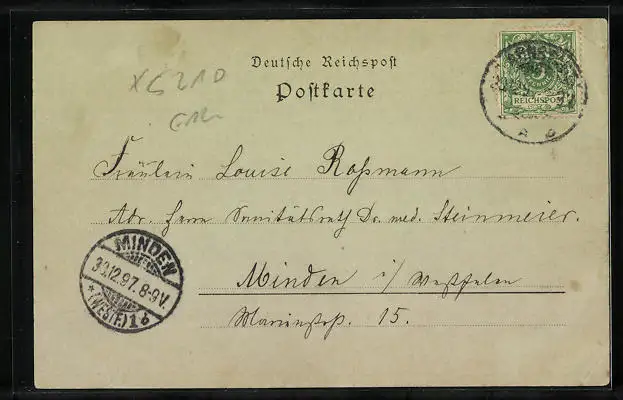 Deutsche Reichspost
Postkarte
REICHSPOST
Fräulein Louise Roßmann
Adr. Herrn Sanitätsrath Dr. med. Steinmeier.
Minden i/Westfalen
Marienstraß. 15.
MINDEN
30.12.97. 8-9V
*(WESTF.)1d